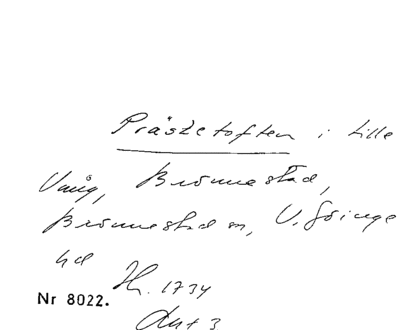 Prästetoften i Lille
Vång, Brönnestad,
Brönnestad sn, V. Göinge
hd
Nr 8022.
Hr. 1734
Akt 3